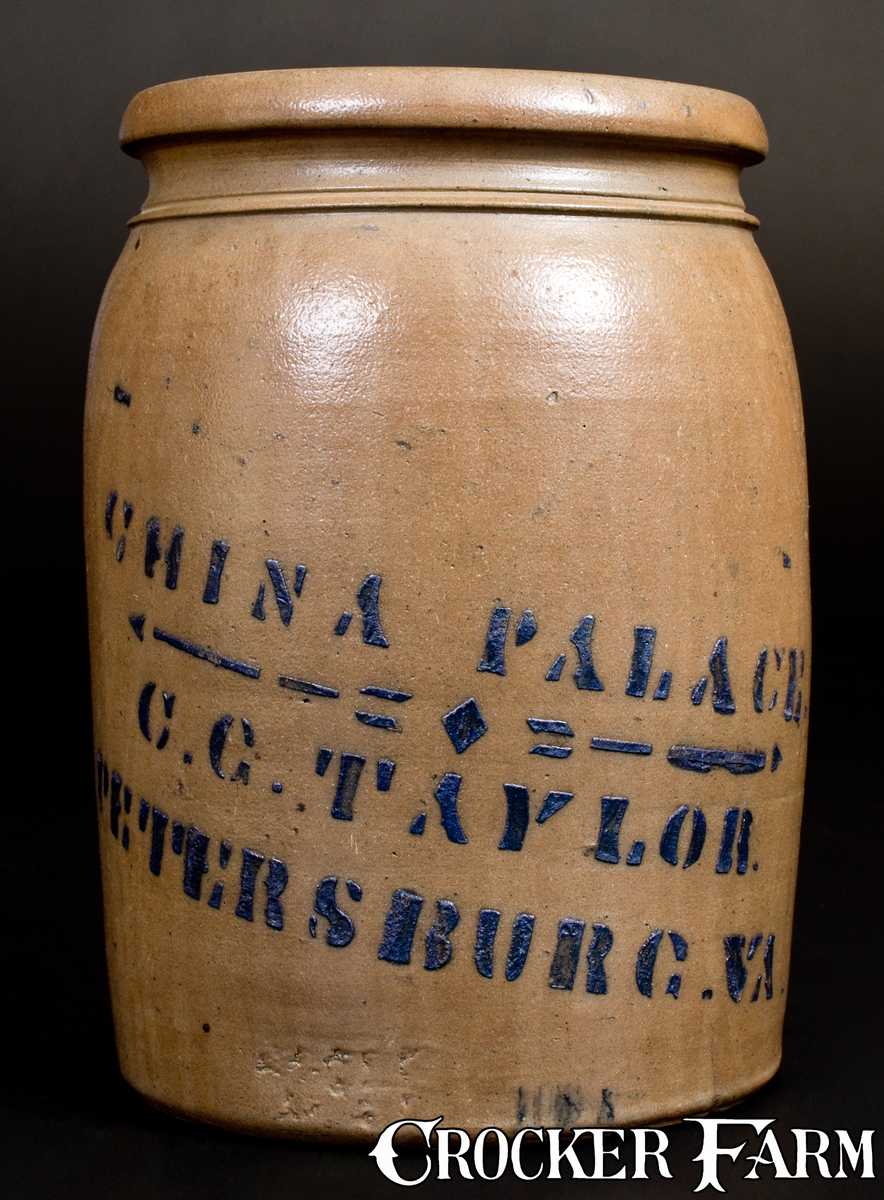 CHINA PALACE.
C.G. TAYLOR.
PETERSBURG. VA.
CROCKER FARM